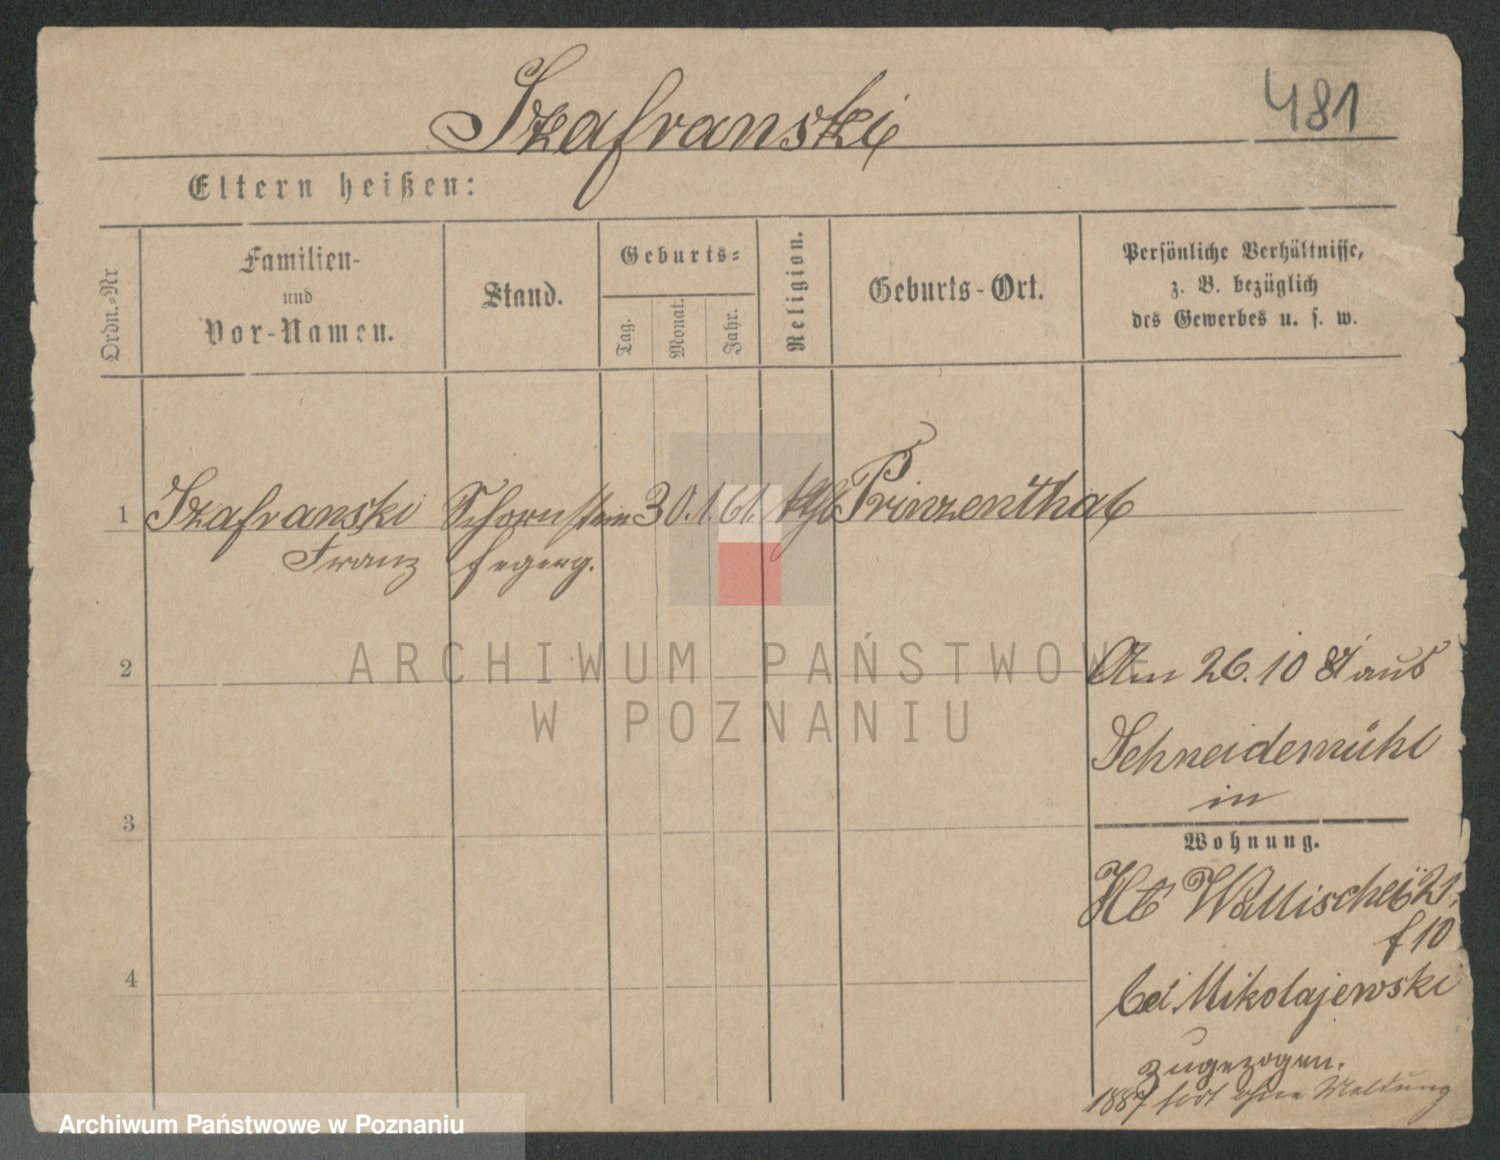 Szafranski
481
Eltern heißen:
Ordn.-Nr
Familien-
und
Vor-Namen.
Stand.
Geburts-
Tag.
Monat.
Jahr.
Religion.
Geburts-Ort.
Persönliche Verhältnisse,
z. B. bezüglich
des Gewerbes u. s. w.
1 Szafranski Schornstein 30. 1. 61. kth Prinzenthal
Franz fegerg.
2
Am 26. 10 87 aus
Schneidemühl
in
3
Wohnung.
Wallischei 21,
4
bei Mikolajewski
zugezogen.
1887 fort ohne Meldung
ARCHIWUM PAŃSTWOWE
W POZNANIU
Archiwum Państwowe w Poznaniu